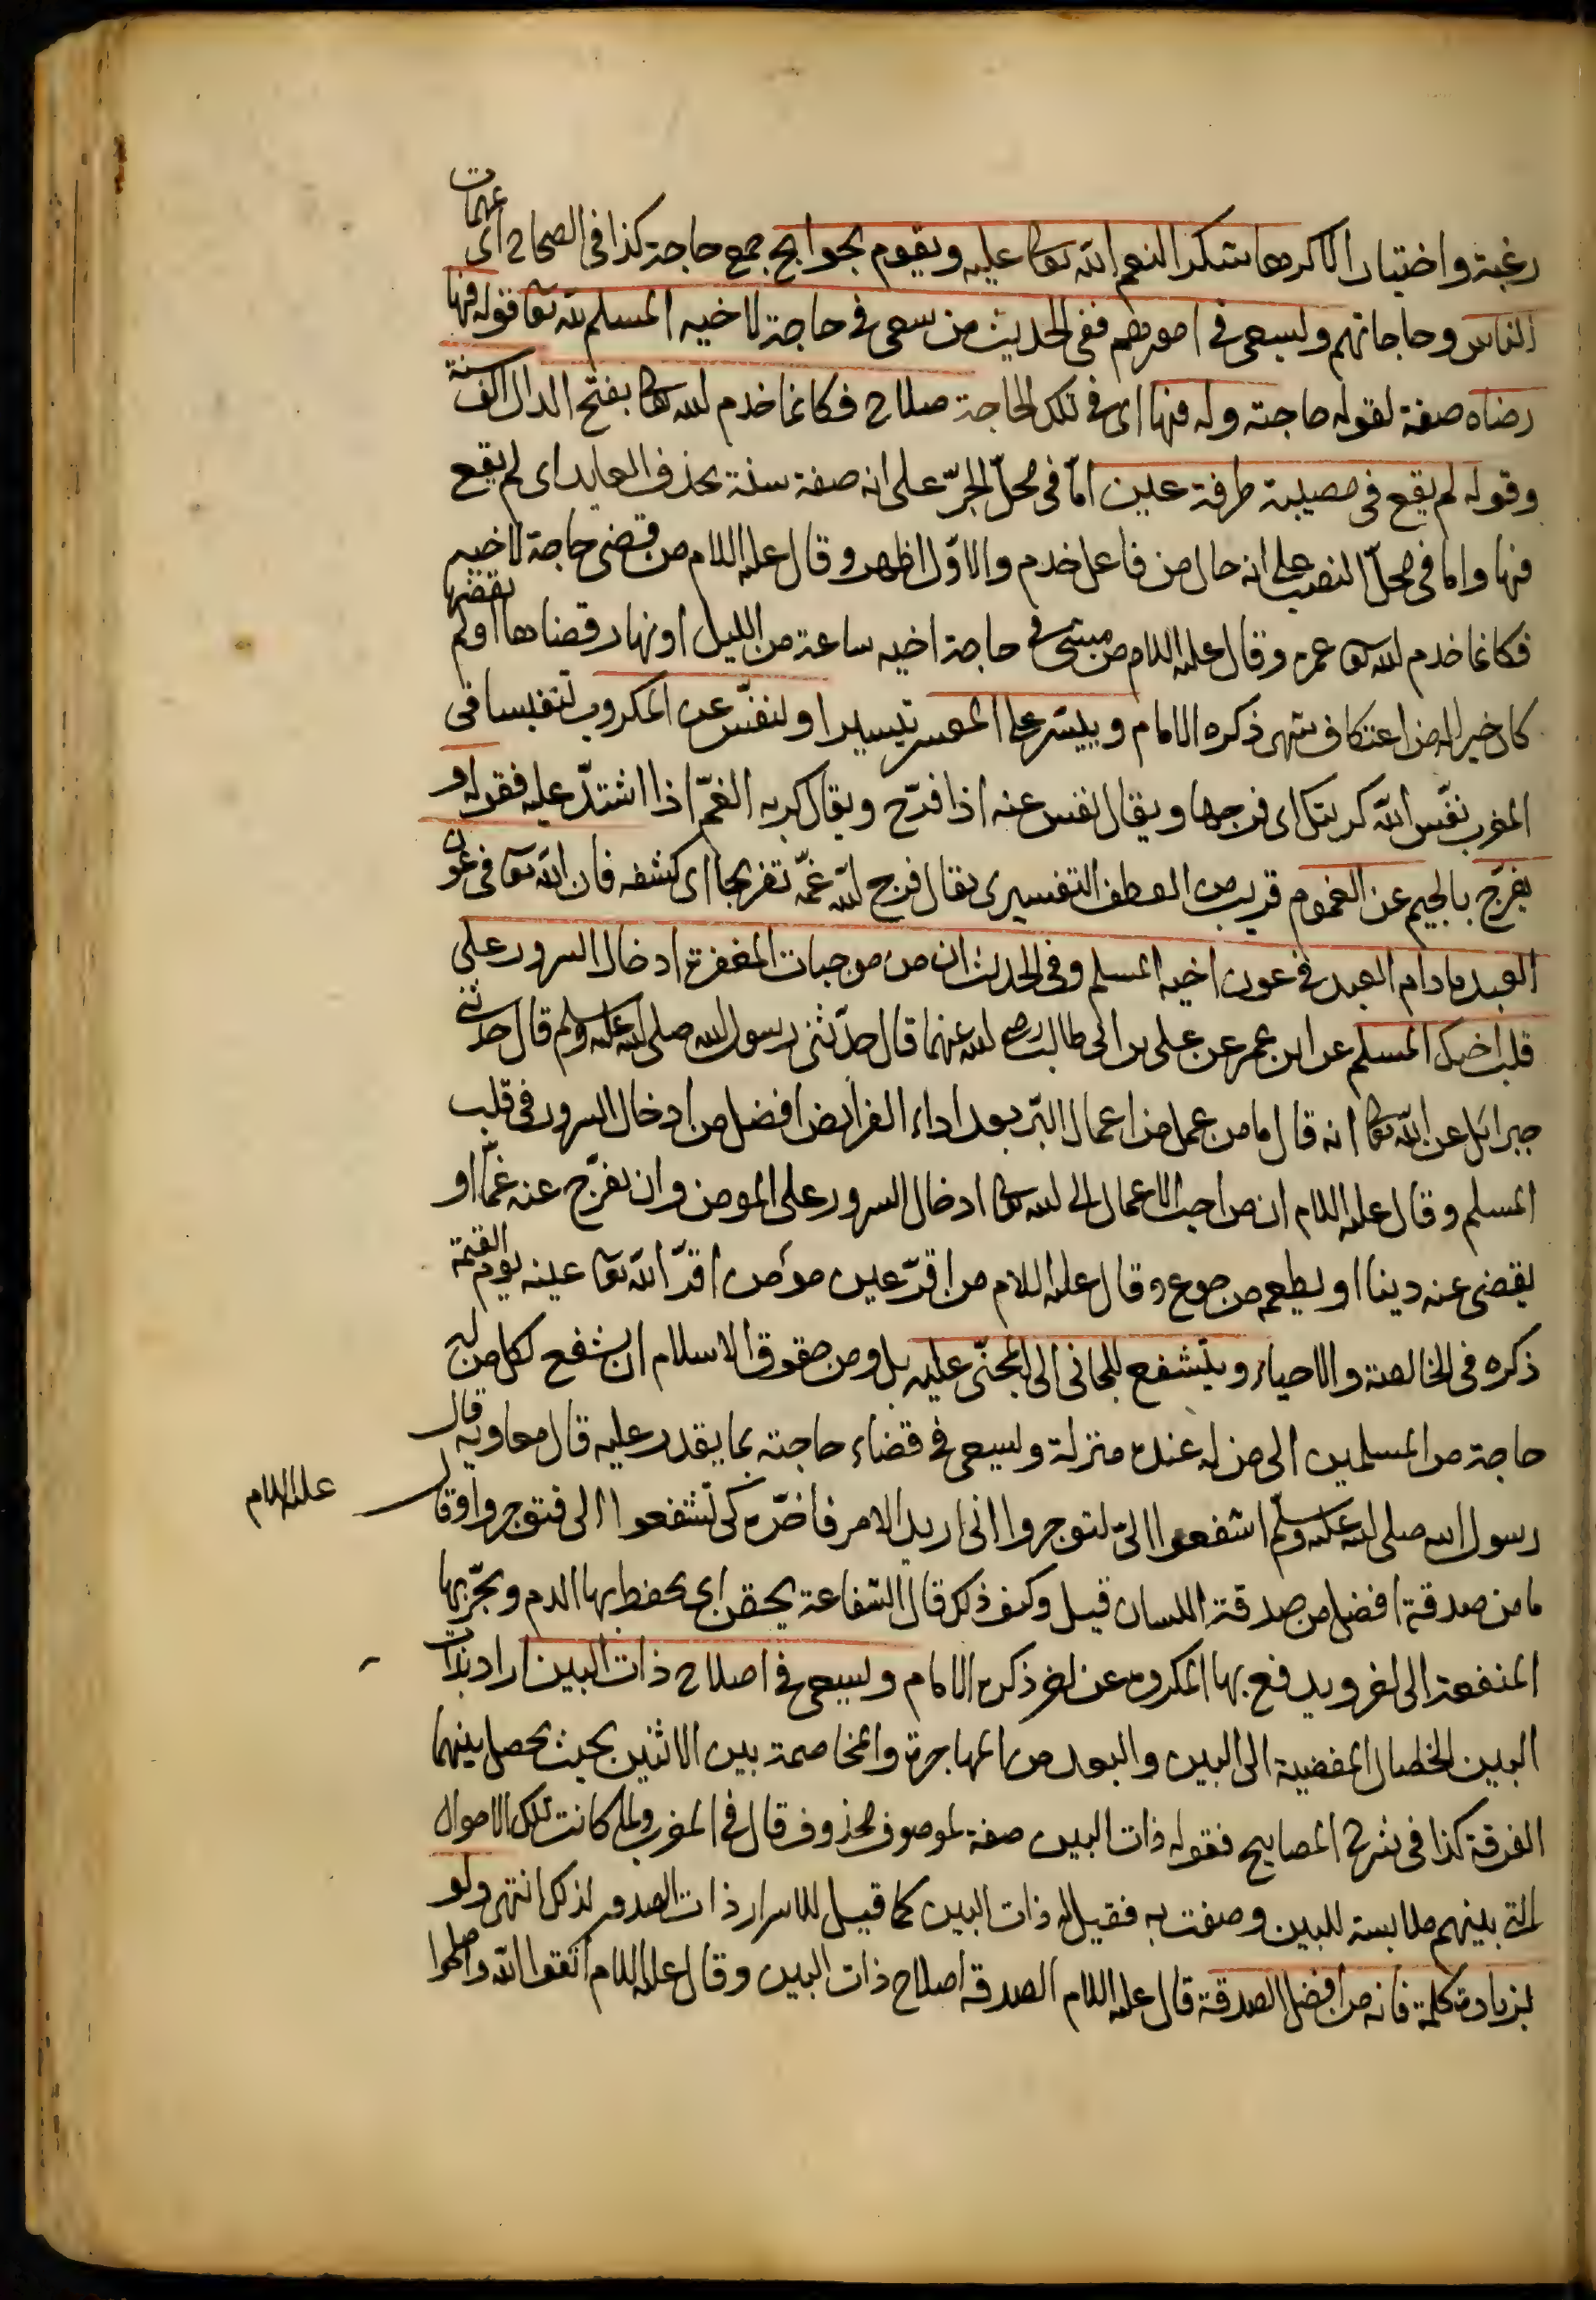 رغبة واختيارا لا كرها شكرا لنعم الله تعا عليه ويقوم بحوايج جمع حاجة كذا في الصحاح اى مهمات
الناس وحاجاتهم ويسعى في امورهم ففى الحديث من سعى في حاجة لاخيه المسلم لله تعا قوله فيها
رضاه صفة لقوله حاجته وله فيها اى في تلك الحاجة صلاح فكانما خدم الله تعا بفتح الدال الف سنة
وقوله لم يقع في معصية طرفة عين امّا في محلّ الجرّ على انه صفة سنة بحذف العايد اى لم يقع
فيها واما في محلّ النصب على انه حال من فاعل خدم والاوّل اظهر وقال عليه السلام من قضى حاجة لاخيه
فكانما خدم الله تعا عمره وقال عليه السلام من مشى في حاجة اخيه ساعة من الليل او نهار قضاها او لم يقضها
كان خيرا له من اعتكاف شهر ذكره الامام وييسّر على المعسر تيسيرا ولينفّس عن المكروب تنفيسا في
المغرب نفّس الله كربتك اى فرجها ويقال نفس عنه اذا فرّج ويقال كربه الغمّ اذا اشتدّ عليه فقوله و
يفرّج بالجيم عن الغموم قريب من العطف التفسيرى يقال فرج الله غمّه تفريجا اى كشفه فان الله تعا في عون
العبد ما دام العبد في عون اخيه المسلم وفى الحديث ان من موجبات المغفرة ادخال السرور على
قلب اخيك المسلم عن ابن عمر عن على بن ابى طالب رضى الله عنهما قال حدّثنى رسول الله صلى الله عليه وسلم قال حدثنى
جبرائل عن الله تعا انه قال ما من عمل من اعمال البرّ بعد اداء الفرائض افضل من ادخال السرور في قلب
المسلم وقال عليه السلام ان من احب الاعمال الى الله تعا ادخال السرور على المومن وان يفرّج عنه غمّا او
يقضى عنه دينا او يطعم من جوع وقال عليه السلام من اقرّ عين مؤمن اقرّ الله تعا عينه يوم القيمة
ذكره في الخالصة والاحياء ويتشفع للجانى الى المجنىّ عليه بل ومن حقوق الاسلام ان يشفع لكل من له
حاجة من المسلمين الى من له عنده منزلة ويسعى في قضاء حاجته بما يقدر عليه قال معاوية قال
رسول الله صلى الله عليه وسلم اشفعوا الىّ لتوجروا انى اريد الامر فاخّره كى تشفعوا الى فتوجروا وقال عليه السلام
ما من صدقة افضل من صدقة اللسان قيل وكيف ذلك قال الشفاعة يحقن اى يحفظ بها الدم ويجرّ بها
المنفعة الى اخر ويدفع بها المكروه عن اخر ذكره الامام ويسعى في اصلاح ذات البين اراد بذات
البين الخصال المفضية الى البين والبعد من المهاجرة والمخاصمة بين الاثنين بحيث يحصل بينهما
الفرقة كذا في شرح المصابيح فقوله ذات البين صفة لموصوف محذوف قال في المغرب ولما كانت تلك الاحوال
التى بينهم ملابسة للبين وصفت به فقيل لها ذات البين كما قيل للاسرار ذات الصدور لذلك انتهى ولو
بزيادة كلمة فانه من افضل الصدقة قال عليه السلام الصدقة اصلاح ذات البين وقال عليه السلام اتقوا الله واصلحوا